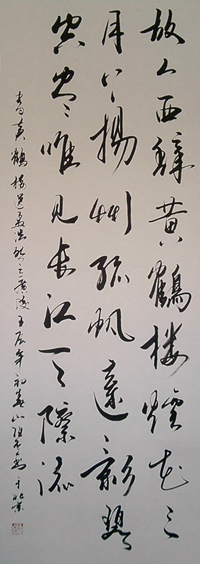 故人西辭黄鶴樓煙花三
月下揚州孤帆遠影碧
空尽唯見長江天際流
黄鶴楼送孟浩然之广陵壬辰年初春